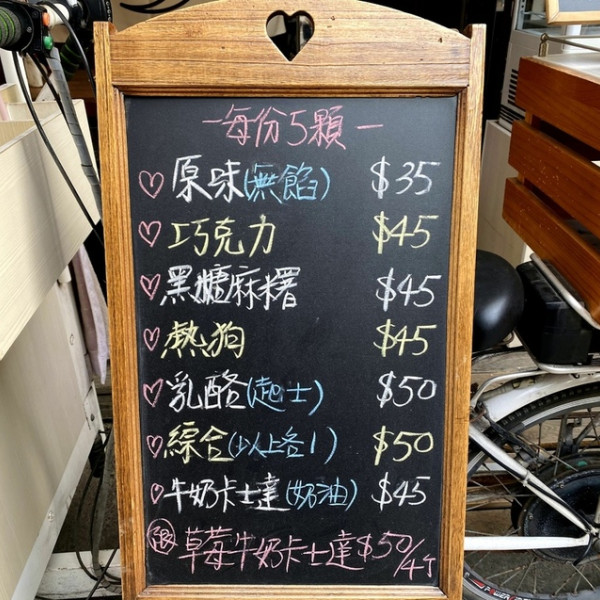 —每份5顆—
原味(無餡) $35
巧克力 $45
黑糖麻糬 $45
熱狗 $45
乳酪(起士) $50
綜合(以上各1) $50
牛奶卡士達(奶油) $45
限 草莓牛奶卡士達$50/4顆